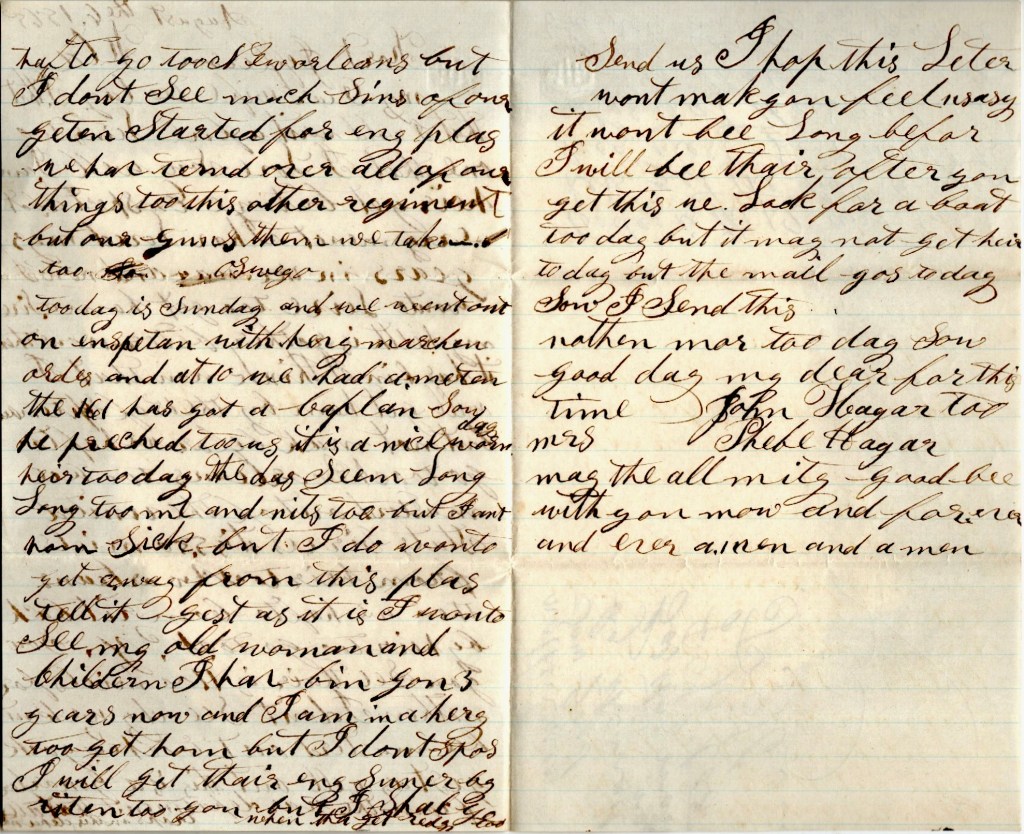 haf to go tooe Neworleans but
I dont See much Sins of our
geten Started for eny plas
we hav ternd over all of our
things too this other regiment
but our guns them we take
too oswego
too day is Sunday and we went out
on enspetan with hevy marchen
ordes and at 10 we had a meten
the 161 has got a caplan Sow
he preched too us it is a nice worm day
heir too day the das Seem Long
Long too me and nits too but I ant
hom Sick. but I do wonto
get away from this plas
tell it gest as it is I wonto
See my old woman and
children I hav bin gon 3
years now and I am in a hery
too get hom but I dont spos
I will get thair eny Suner by
riten too you but I shal
when tha get redy too
Send us I hop this Leter
wont mak you feel unasy
it wont bee Long befor
I will bee thair, after you
get this we Look for a boat
too day but it may not get heir
to day but the mail gos to day
Sow I Send this
nothen mor too day Sow
good day my dear for this
time John Hagar too
mrs Phebe Hagar
may the all mity good bee
with you now and for ever
and ever amen and amen
August the 6, 1865